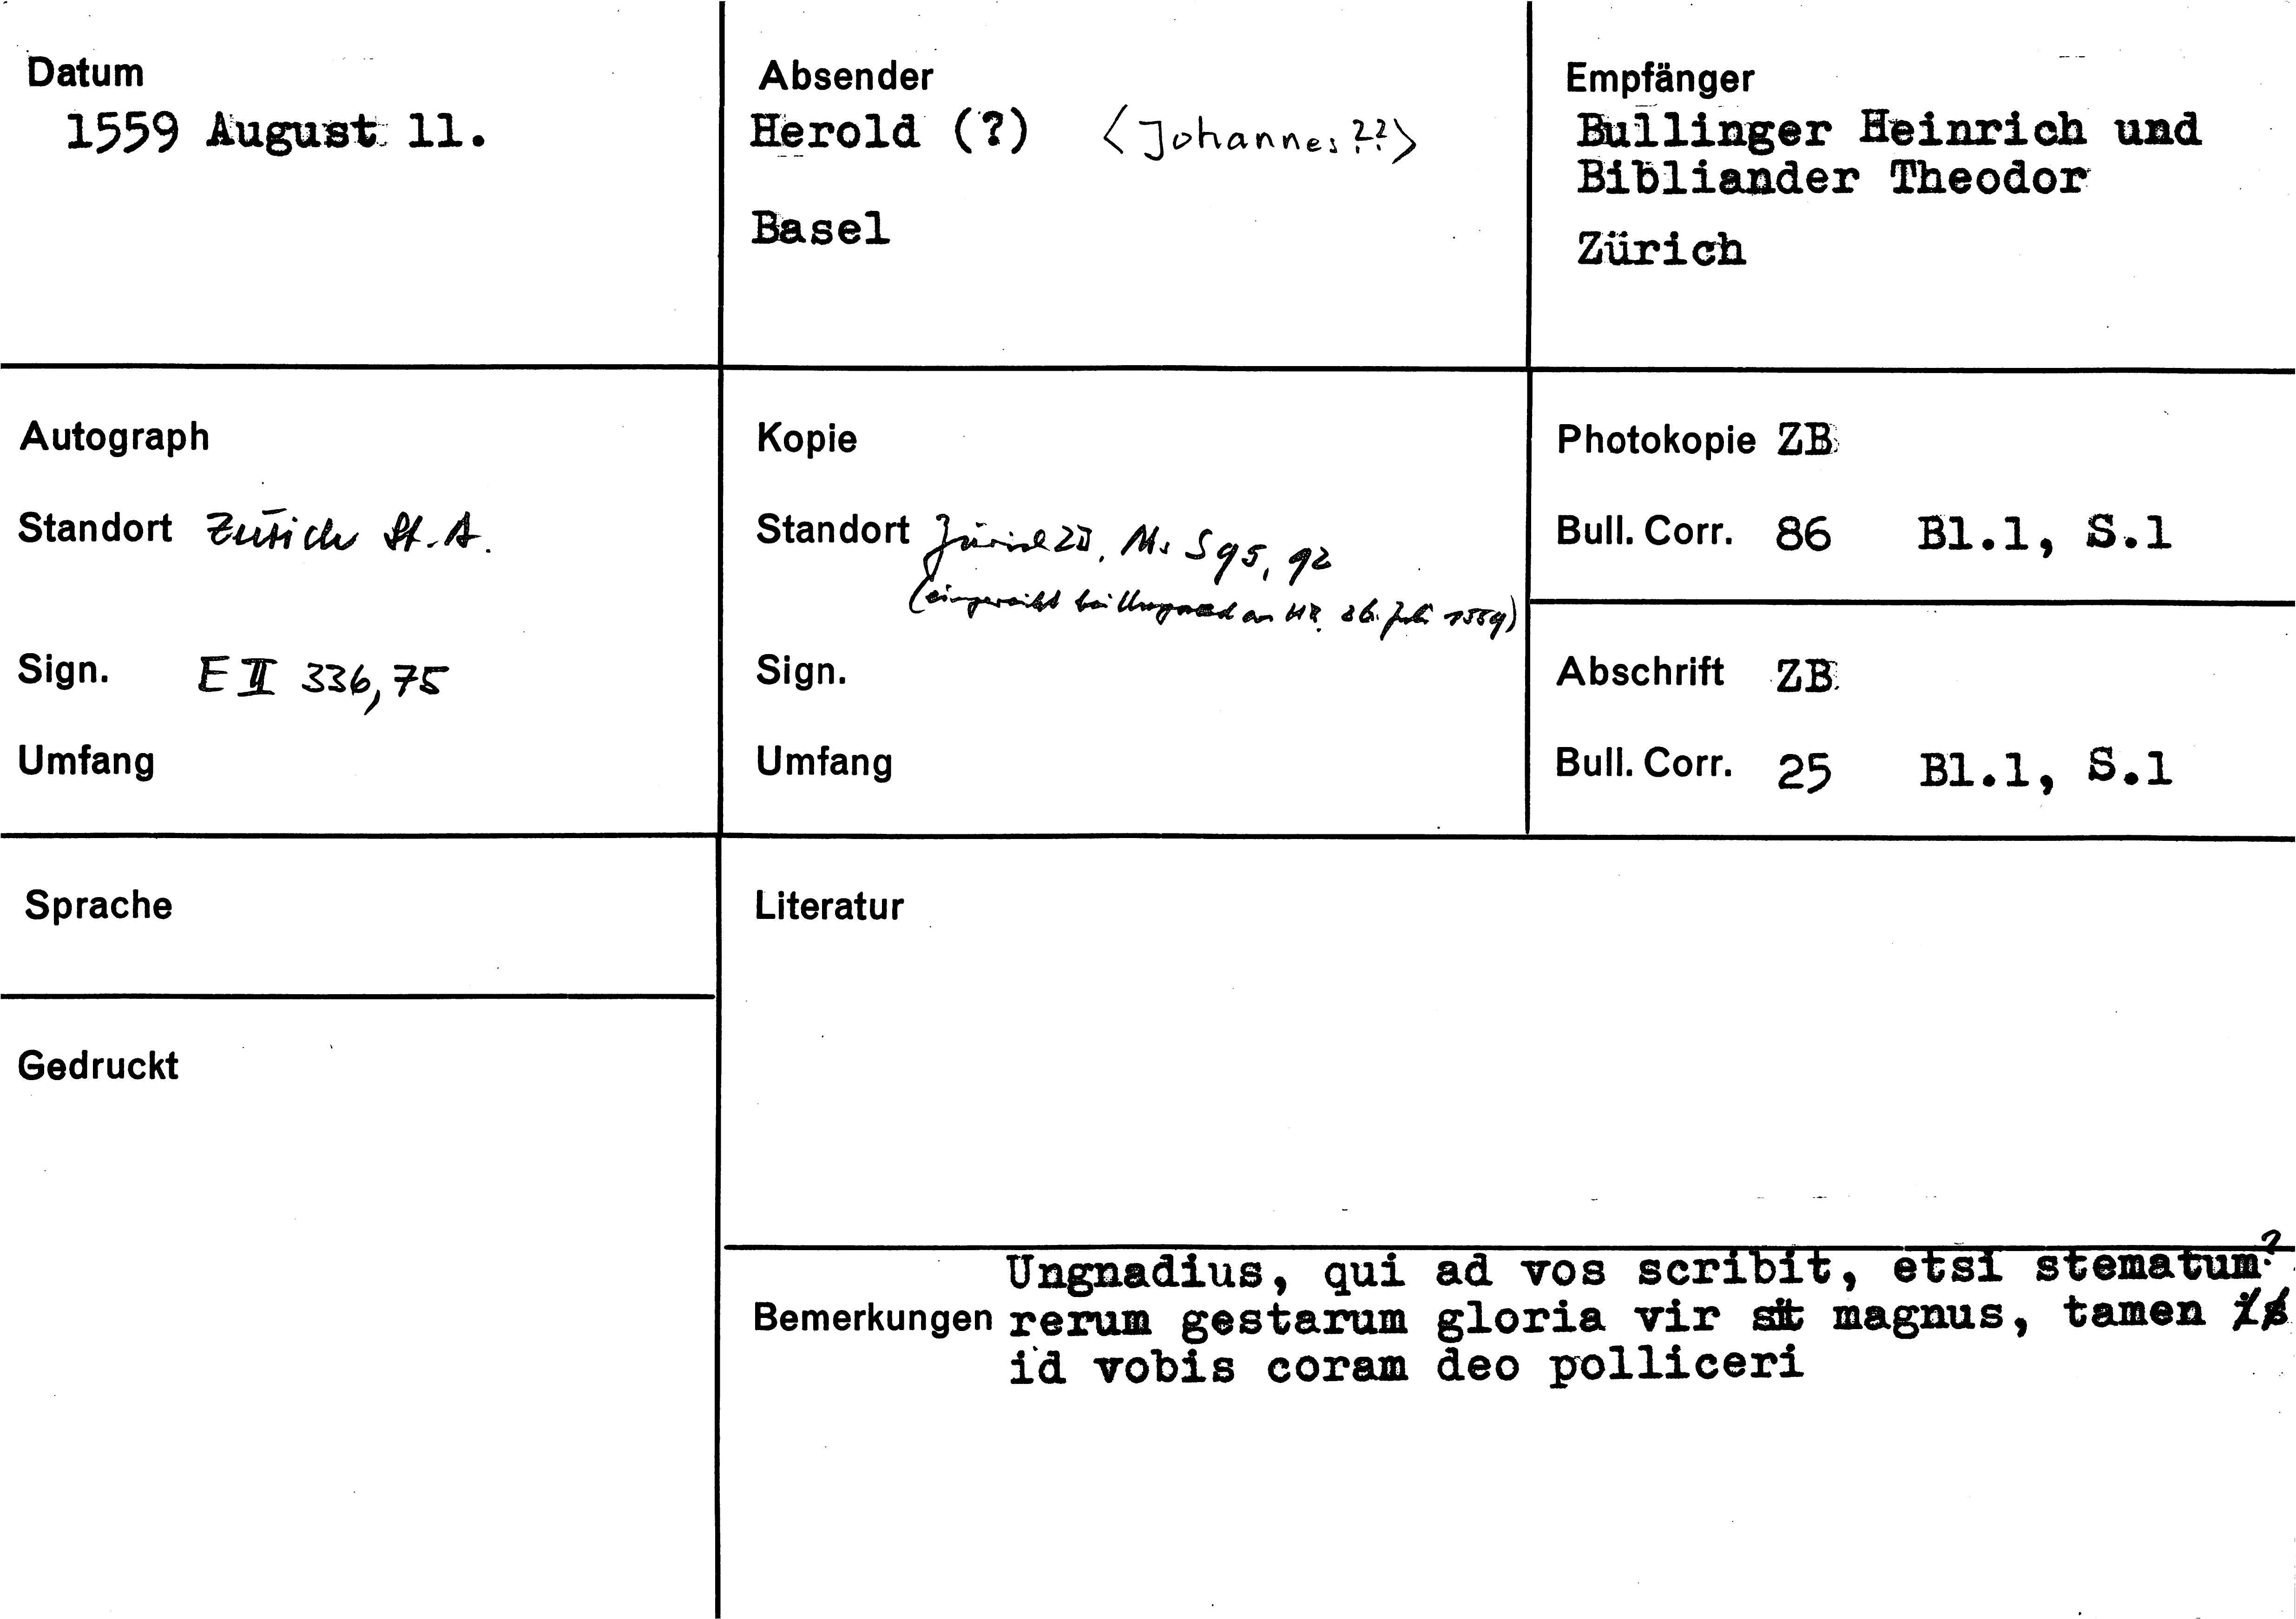 Datum
1559 August 11.
Absender
Herold (?) <Johannes ??>
Basel
Empfänger
Bullinger Heinrich und
Bibliander Theodor
Zürich
Autograph
Standort Zürich St.A.
Sign. E II 336,75
Umfang
Kopie
Standort Zürich ZB, Ms S 95, 92
(eingereiht bei Ungnad an HB, 26. Juli 1559)
Sign.
Umfang
Photokopie ZB
Bull. Corr. 86 Bl.1, S.1
Abschrift ZB
Bull. Corr. 25 Bl.1, S.1
Sprache
Gedruckt
Literatur
Bemerkungen
Ungnadius, qui ad vos scribit, etsi stematum?
rerum gestarum gloria vir sit magnus, tamen
id vobis coram deo polliceri